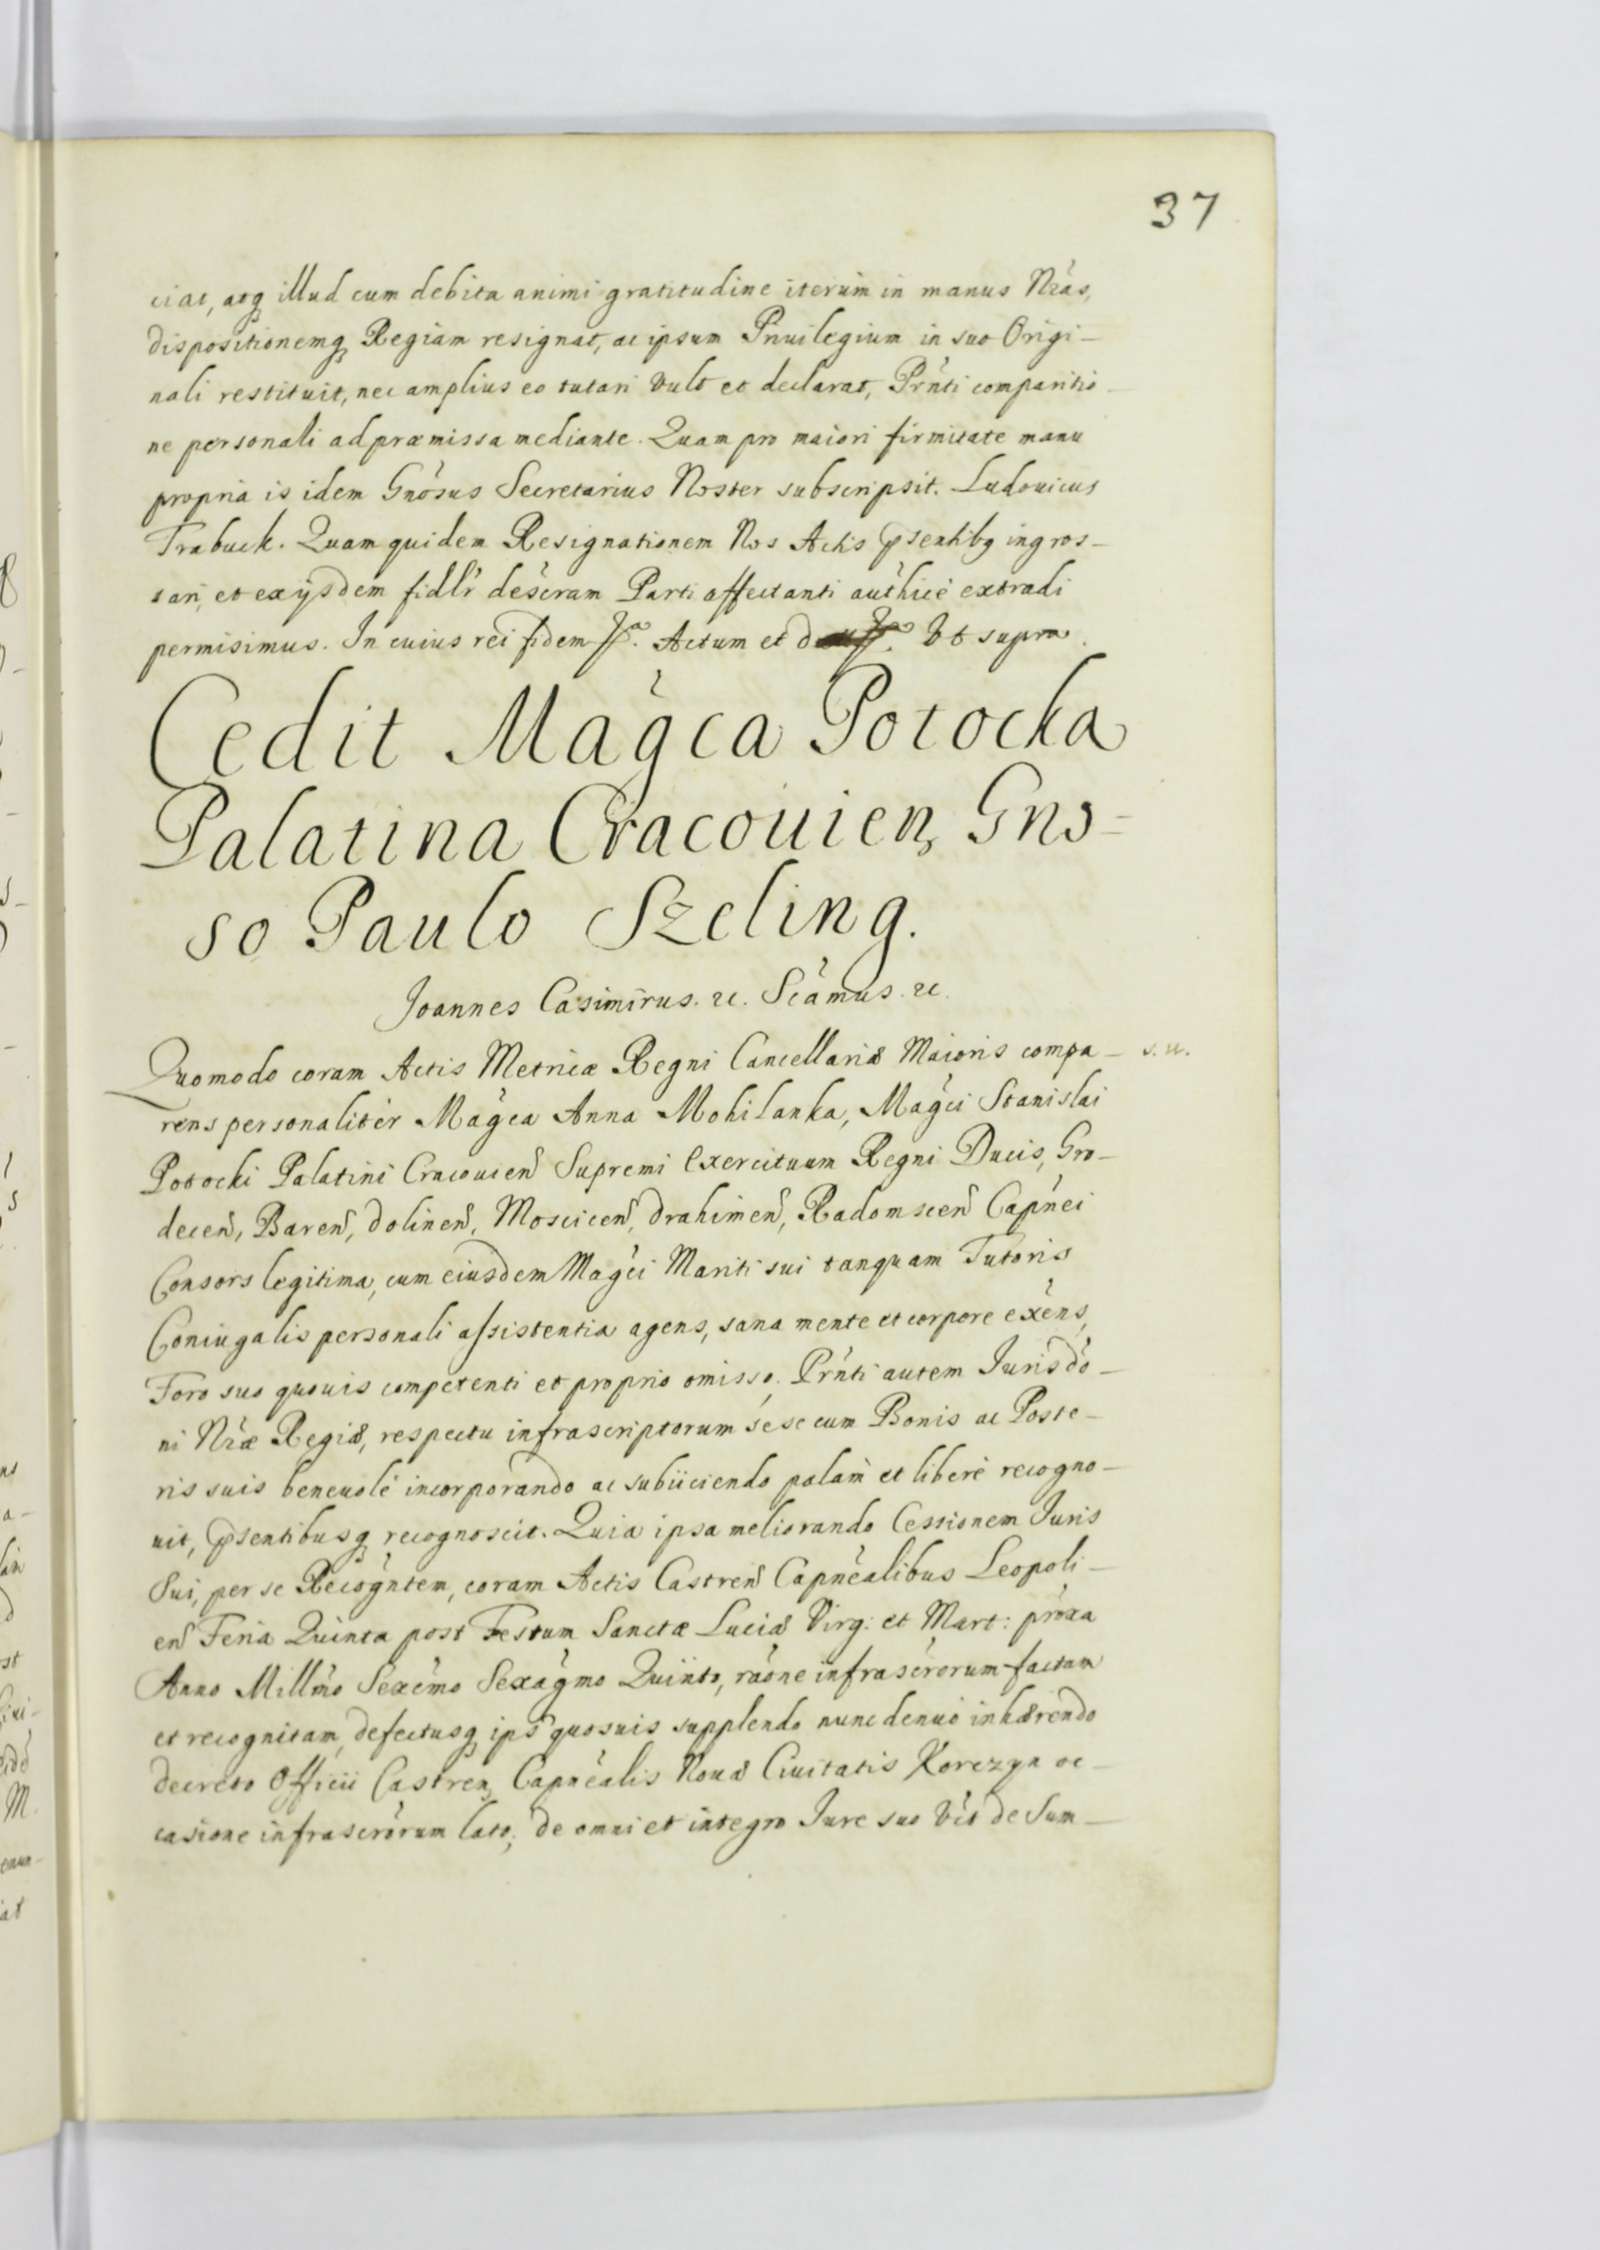 37
ciat, atq illud cum debita animi gratitudine iterum in manus Nras,
dispositionemq Regiam resignat, ac ipsum Priuilegium in suo Origi-
nali restituit, nec amplius eo tutari vult et declarat, Prnti comparitio-
ne personali ad præmissa mediante. Quam pro maiori firmitate manu
propria is idem Gnosus Secretarius Noster subscripsit. Ludouicus
Trabuck. Quam quidem Resignationem Nos Actis psentibq ingros-
sari, et ex ijsdem fidlr descram Parti affectanti authice extradi
permisimus. In cuius rei fidem. Actum et Vt supra.
Cedit Magca Potocka
Palatina Cracouien, Gno-
so Paulo Szeling.
Joannes Casimirus. &c. Scamus. &c.
Quomodo coram Actis Metricæ Regni Cancellariæ Maioris compa- s.u.
rens personaliter Magca Anna Mohilanka, Magci Stanislai
Potocki Palatini Cracouien Supremi Exercituum Regni Ducis, Gro-
decen, Baren, Dolinen, Moscicen, Drahimen, Radomscen Capnei
Consors legitima, cum eiusdem Magci Mariti sui tanquam Tutoris
Coniugalis personali assistentia agens, sana mente et corpore exens,
Foro suo quouis competenti et proprio omisso. Prnti autem Jurisdo-
ni Nræ Regiæ, respectu infrascriptorum sese cum Bonis ac Poste-
ris suis beneuole incorporando ac subiiciendo palam et libere recogno-
uit, psentibusq recognoscit. Quia ipsa meliorando Cessionem Juris
Sui, per se Recogntem, coram Actis Castren Capnealibus Leopoli-
en Feria Quinta post Festum Sanctæ Luciæ Virg: et Mart: proxa
Anno Millmo Sexcmo Sexagmo Quinto, raone infrascrorum factam
et recognitam, defectusq ips quosuis supplendo nunc denuo inhærendo
decreto Officii Castren, Capnealis Nouæ Ciuitatis Korczyn oc-
casione infrascrorum lato, de omni et integro Jure suo Vit de Sum-